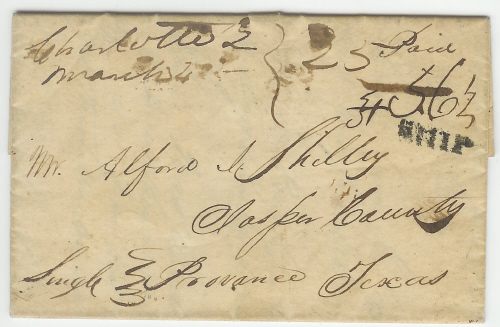 Charlotte
March 4
25 Paid
56½
SHIP
Mr. Alford L Shelley
Jasper County
Single Provance Texas